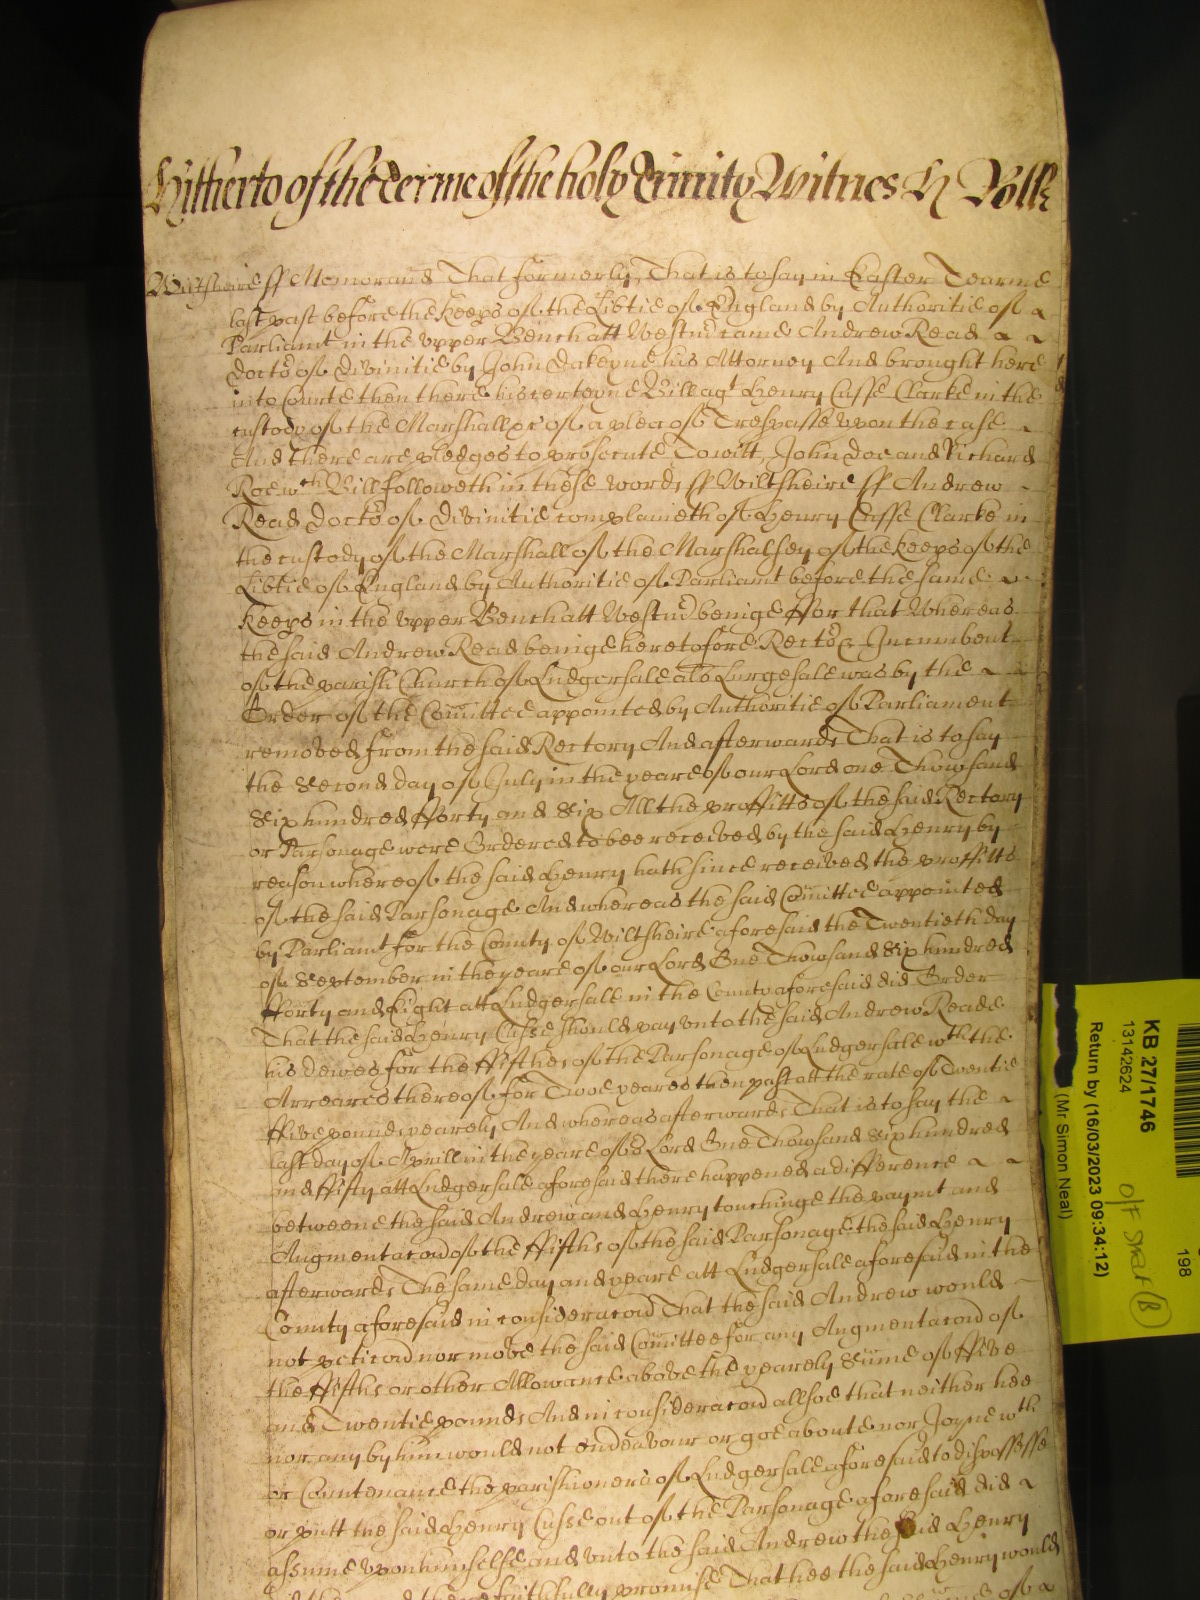 Hitherto of the terme of the holy Trinity Witnes H Rolle
Wiltsheire ss Memorand That formerly, That is to say in Easter Tearme
last past before the Keeps of the Libtie of England by Authoritie of
Parliamt in the vpper Bench att Westm came Andrew Read
Docto of Divinitie by John Dakeyne his Attorney And brought here
into Courte then there his certeyne Bill agt Henry Cusse Clarke in the
custody of the Marshall &c of a plea of Trespasse vpon the case
And there are pledges to prosecute To witt, John Doe and Richard
Roe wch Bill followeth in these words ss Wiltsheire ss Andrew
Read Docto of Divinitie complaineth of Henry Cusse Clarke in
the custody of the Marshall of the Marshalsey of the Keeps of the
Libtie of England by Authoritie of Parliamt before the same
Keeps in the vpper Bench att Westm beinge ffor that Whereas
the said Andrew Read beinge heretofore Recto & Incumbent
of the parish Church of Ludgersale als Lurgesale was by the
Order of the Comittee appointed by Authoritie of Parliament
removed from the said Rectory And afterwards That is to say
the Second day of July in the yeare of our Lord one Thowsand
Six hundred fforty and Six All the proffitts of the said Rectory
or Parsonage were Ordered to bee received by the said Henry by
reason whereof the said Henry hath since received the proffitts
of the said Parsonage And whereas the said Comittee appointed
by Parliamt for the County of Wiltsheire aforesaid the Twentieth day
of September in the yeare of our Lord One Thowsand Six hundred
fforty and Eight att Ludgersale in the County aforesaid did Order
That the said Henry Cusse should pay vnto the said Andrew Reade
his dewes for the ffifthes of the Parsonage of Ludgersale wth the
Arreares thereof for Twoe yeares then past att the rate of Twentie
ffive pounds yearely And whereas afterwards That is to say the
last day of Aprill in the yeare of o Lord One Thowsand Six hundred
and ffifty att Ludgersale aforesaid there happened a difference
betweene the said Andrew and Henry touchinge the paymt and
Augmentacon of the ffifths of the said Parsonage the said Henry
afterwards The same day and yeare att Ludgersale aforesaid in the
County aforesaid in consideracon That the said Andrew would
not peticon nor move the said Comittee for any Augmentacon of
the ffifths or other Allowance above the yearely Sume of ffive
and Twentie pounds And in consideracon allsoe that neither hee
nor any by him would not endeavour or goe aboute nor Joyne wth
or Countenance the parishioners of Ludgersale aforesaid to dispossesse
or putt the said Henry Cusse out of the Parsonage aforesaid did
assume vpon himselfe and vnto the said Andrew the said Henry
faithfully promise That hee the said Henry would
KB 27/1746
13142624
Return by (16/03/2023 09:34:12)
(Mr Simon Neal)
198